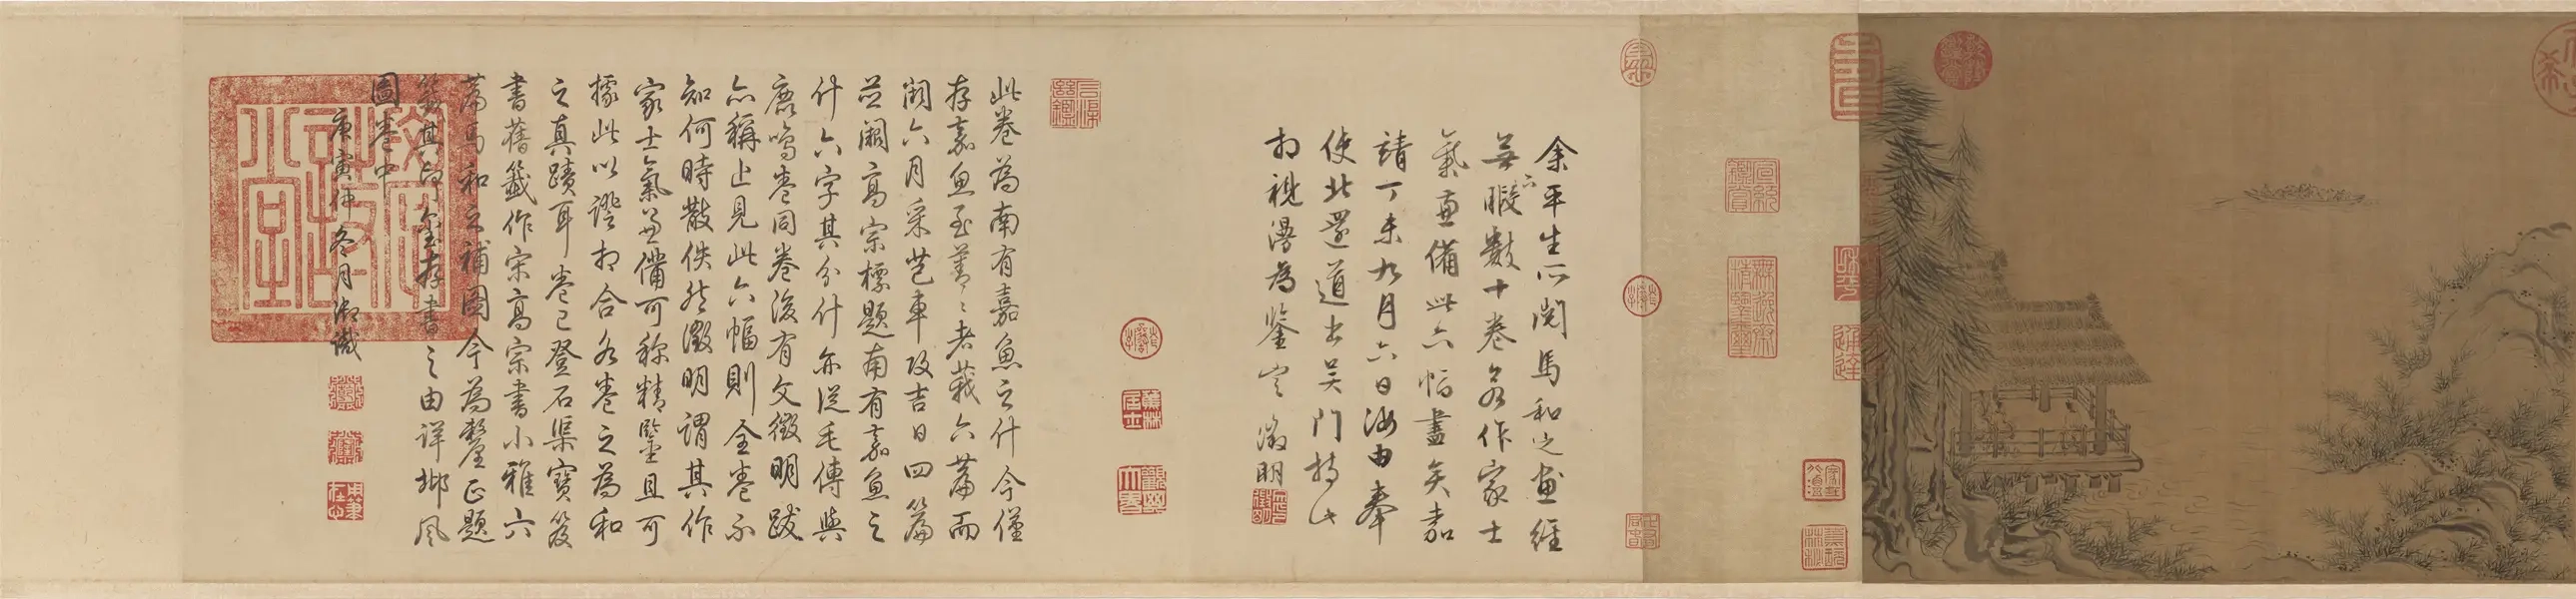 余平生所閱馬和之畫維
無暇數十卷名作家士
氣兼備此六幅盡矣嘉
靖丁未九月六日海由奉
使北還道出吳門持此
相視漫為鑒定 徵明
此卷為南有嘉魚之什今僅
存嘉魚至菁菁者莪六篇而
闕六月采芑車攻吉日四篇
並闕高宗標題南有嘉魚之
什六字其分什亦從毛傳與
鹿鳴卷同卷後有文徵明跋
亦稱止見此六幅則全卷不
知何時散佚然徵明謂其作
家士氣兼備可稱精鑒且可
據此以證相合各卷之為和
之真蹟耳卷已登石渠寶笈
書舊籤作宋高宗書小雅六
篇馬和之補圖今為釐正題
籤其印璽存書之由詳邶風
圖卷中
庚寅仲冬月御識